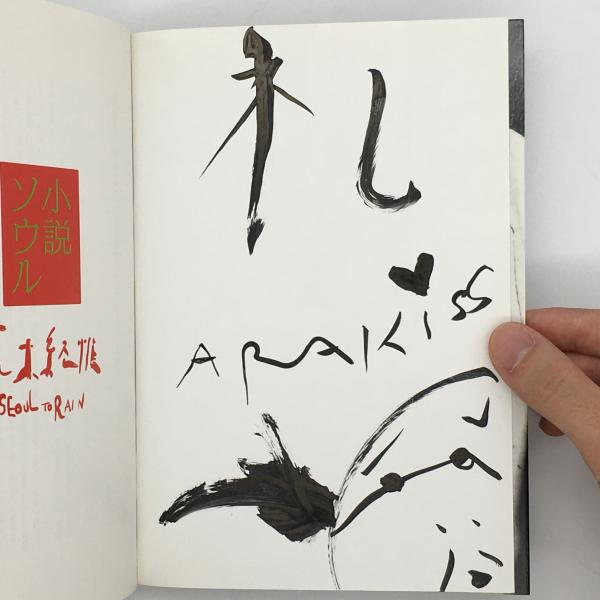 小説
ソウル
木経惟
SEOUL TO RAIN
ARAKISS